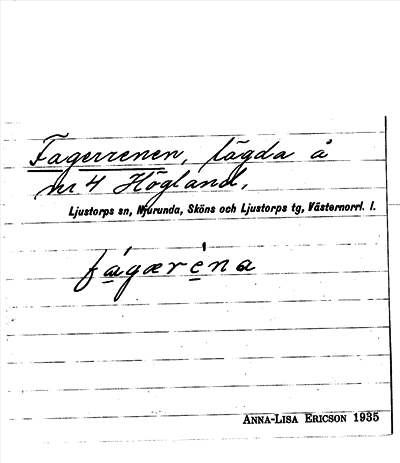 Fagerrenen, lägda å
nr 4 Högland,
Ljustorps sn, Njurunda, Sköns och Ljustorps tg, Västernorrl. l.
fágæréna
ANNA-LISA ERICSON 1935